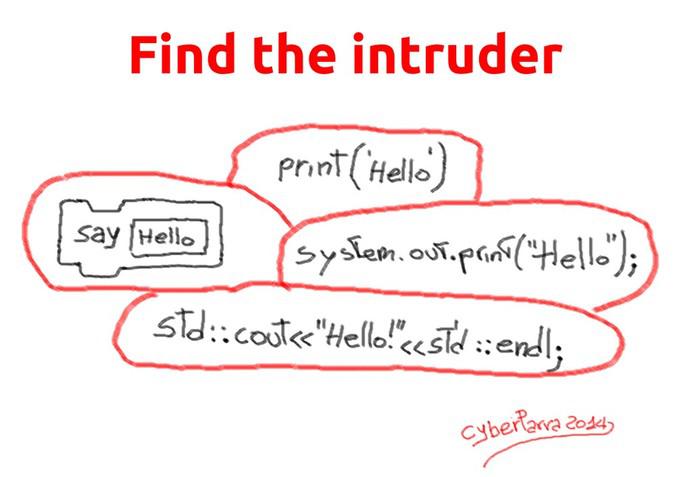 Find the intruder
print('Hello')
say Hello
system.out.print("Hello");
std::cout<<"Hello!"<<std::endl;
CyberParra 2014